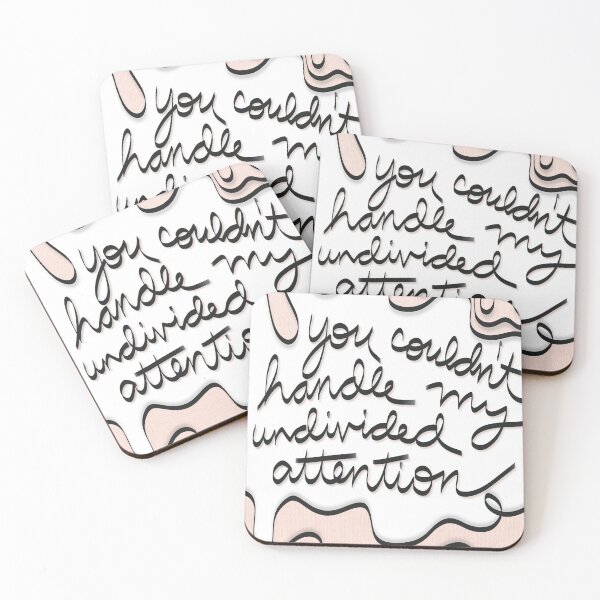 you couldn't
handle my
undivided
you couldn't
handle my
undivided
attention
you couldn't
handle my
undivided
attention
you couldn't
handle my
undivided
attention